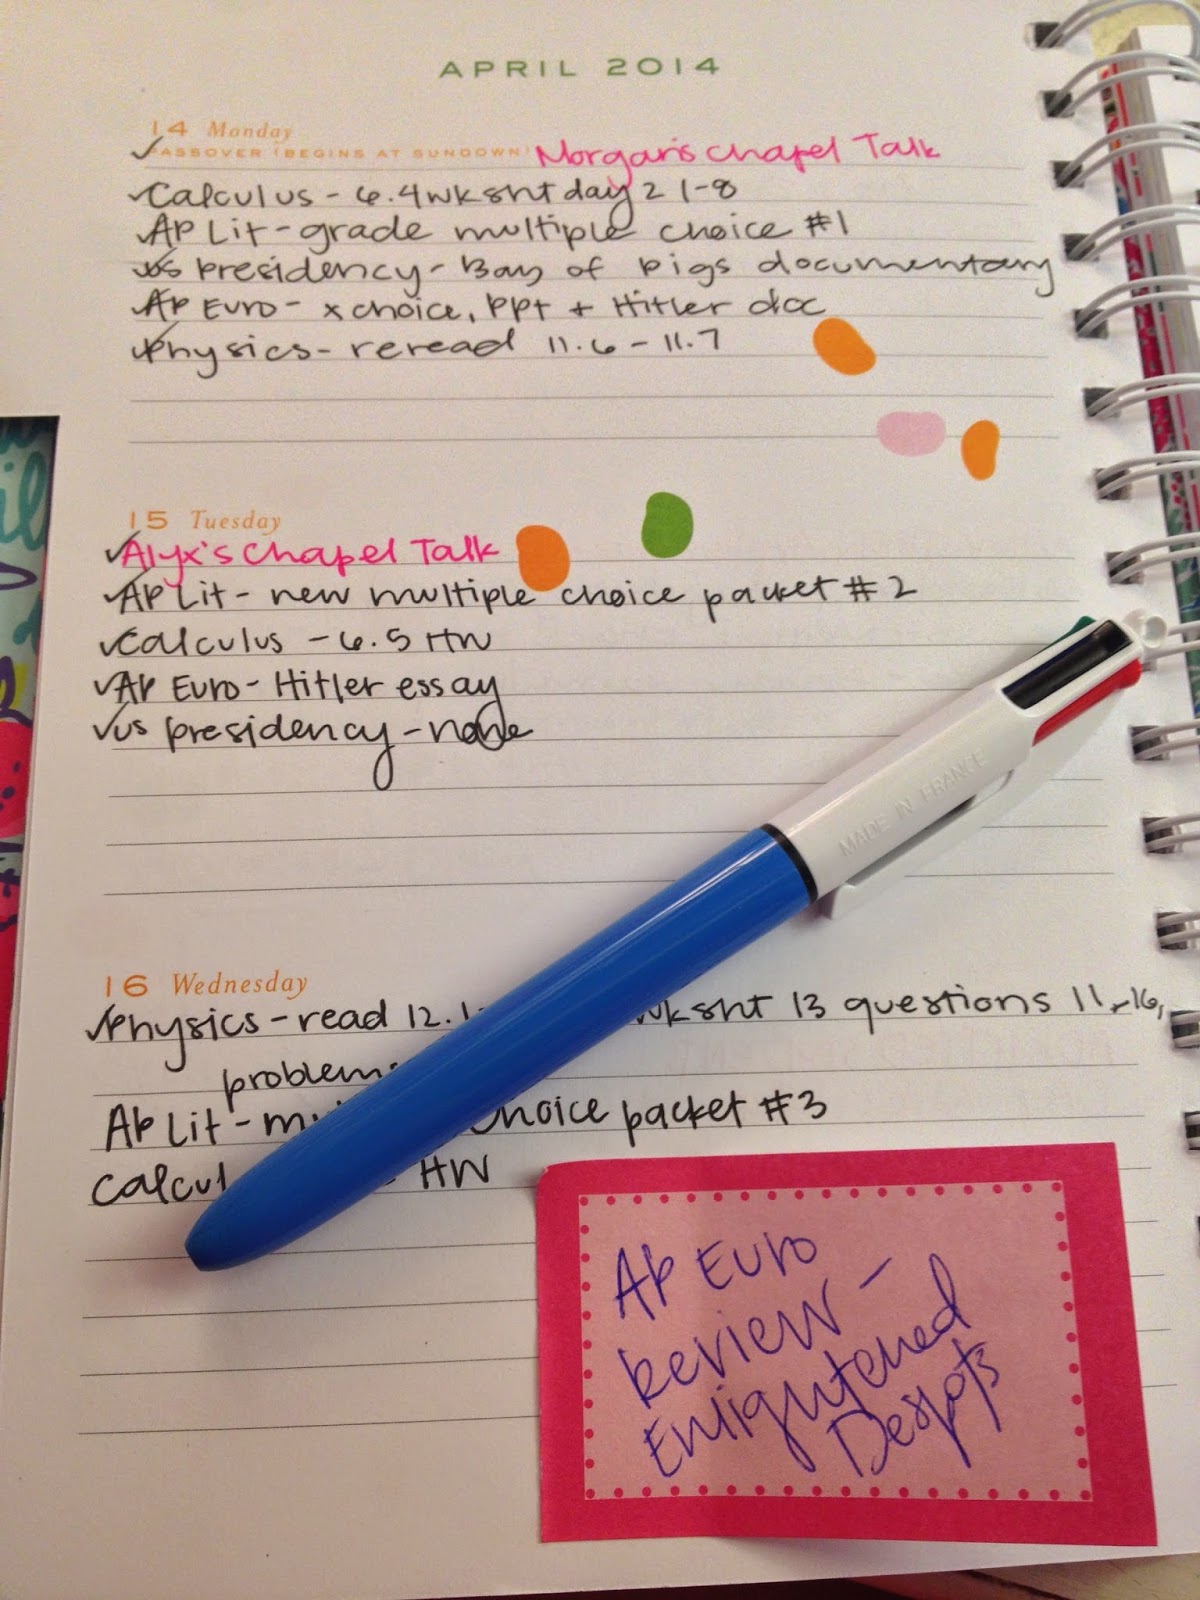 APRIL 2014
14 Monday
PASSOVER (BEGINS AT SUNDOWN) Morgan's Chapel Talk
✓Calculus - 6.4 wksht day 2 1-8
✓AP Lit - grade multiple choice #1
✓US presidency - Bay of pigs documentary
✓AP Euro - x choice, PPT + Hitler doc
✓Physics - reread 11.6 - 11.7
15 Tuesday
✓Alyx's Chapel Talk
✓AP Lit - new multiple choice packet #2
✓Calculus - 6.5 HW
✓AP Euro - Hitler essay
✓US presidency - none
16 Wednesday
✓Physics - read 12.1 wksht 13 questions 11-16,
problems
AP Lit - choice packet #3
HW
MADE IN FRANCE
AP Euro
Review -
Enlightened
Despots